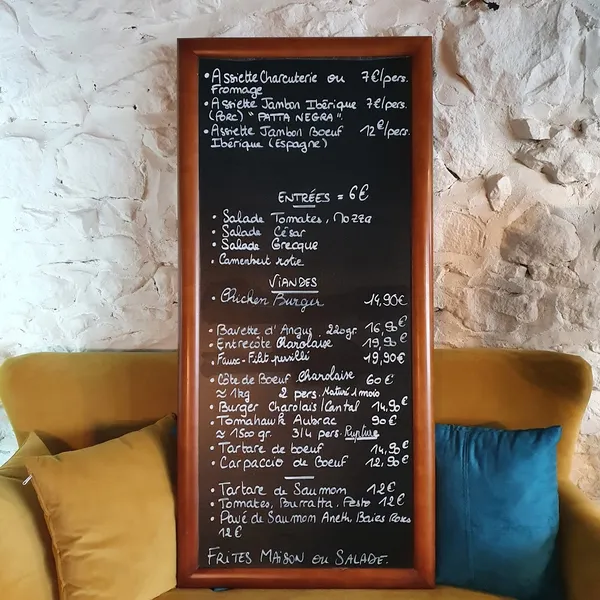 • Assiette Charcuterie ou 7€/pers.
Fromage
• Assiette Jambon Ibérique 7€/pers.
(Porc) "PATTA NEGRA".
• Assiette Jambon Boeuf 12€/pers.
Ibérique (Espagne)
ENTRÉES = 6€
• Salade Tomates, Mozza
• Salade César
• Salade Grecque
• Camembert rotie
VIANDES
• Chicken Burger 14,90€
• Bavette d'Angus . 220gr 16,90€
• Entrecôte Charolaise 19,90€
• Faux-Filet persillé 19,90€
• Côte de Boeuf Charolaise 60€
≈ 1kg 2 pers. Maturé 1 mois
• Burger Charolais/Cantal 14,90€
• Tomahawk Aubrac 90€
≈ 1500 gr. 3/4 pers. Rupture
• Tartare de boeuf 14,90€
• Carpaccio de Boeuf 12,90€
• Tartare de Saumon 12€
• Tomates, Burratta, Pesto 12€
• Pavé de Saumon Aneth, Baies Roses
12€
FRITES MAISON ou SALADE.